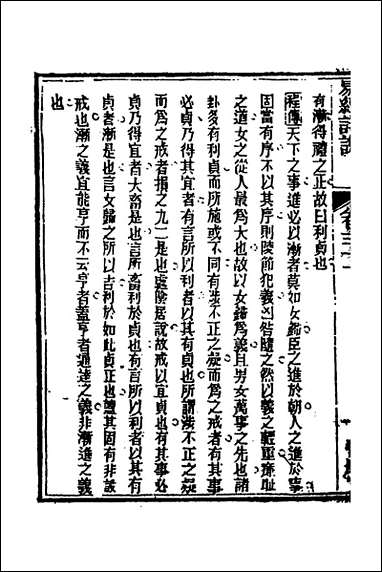 有漸得禮之正故曰利貞也
程傳天下之事進必以漸者莫如女歸臣之進於朝人之進於事
固當有序不以其序則陵節犯義凶咎隨之然以義之輕重廉恥
之道女之從人最爲大也故以女歸爲義且男女萬事之先也諸
卦多有利貞而所施或不同有涉不正之疑而爲之戒者有其事
必貞乃得其宜者有言所以利者以其有貞也所謂涉不正之疑
而爲之戒者損之九二是也處陰居說故戒以宜貞也有其事必
貞乃得宜者大畜是也言所畜利於貞也有言所以利者以其有
貞者漸是也言女歸之所以吉利於如此貞正也謹其固有非設
戒也漸之義宜能亨而不云亨者蓋亨者通達之義非漸進之義
也